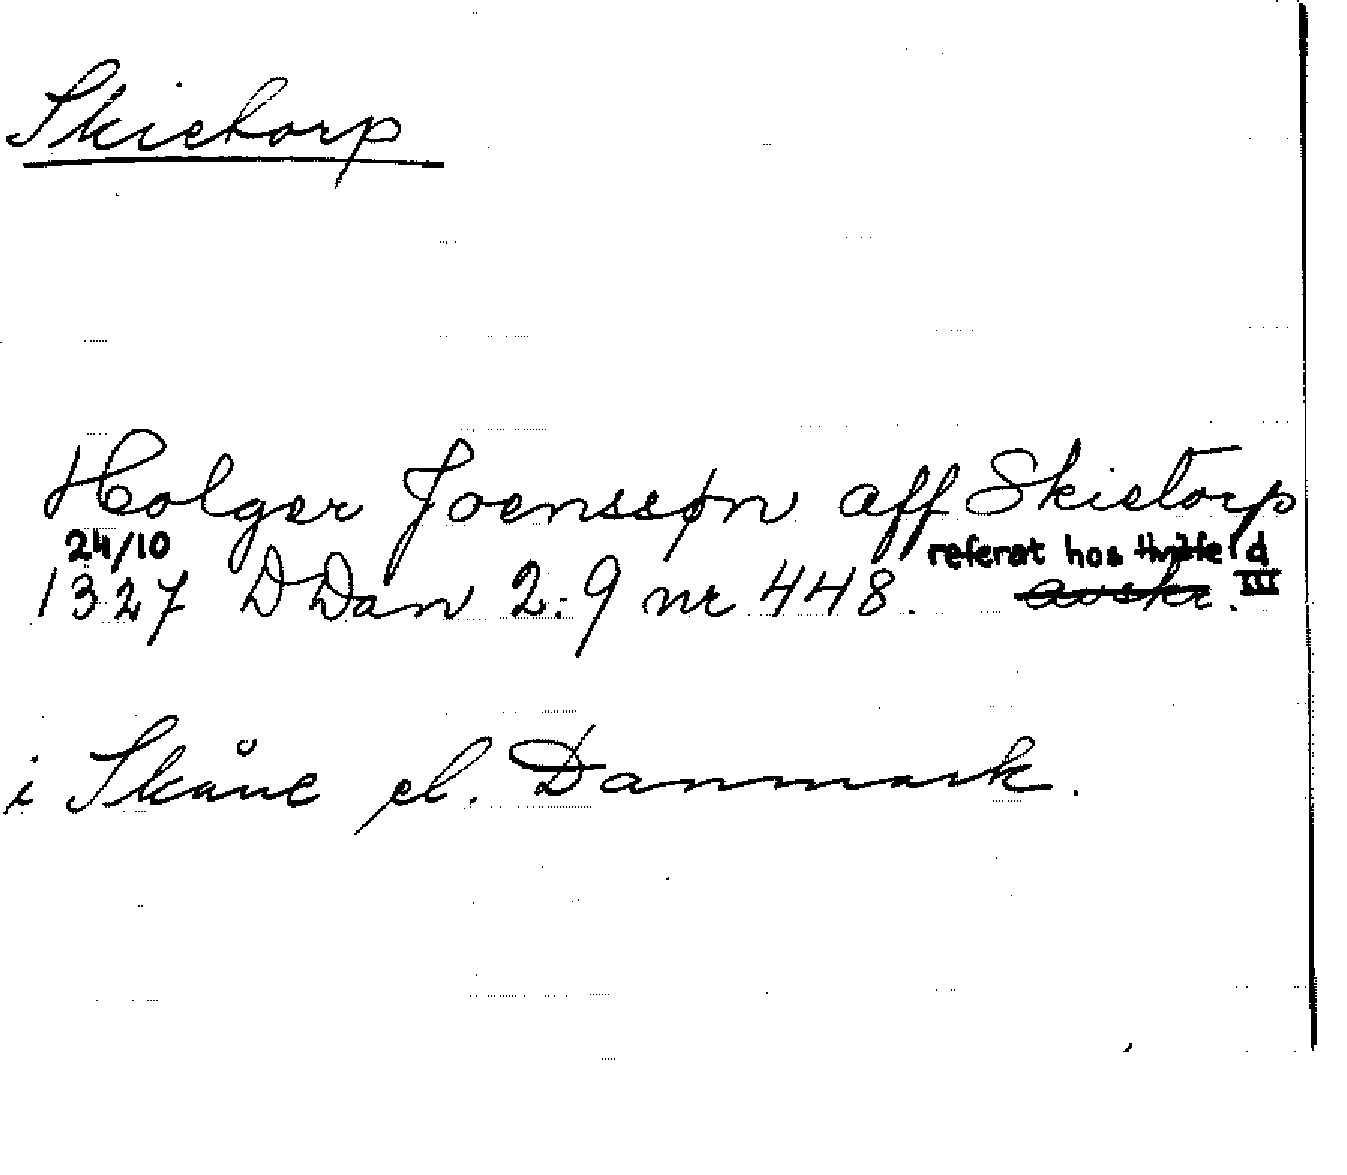 Skietorp
Holger Joenssøn aff Skietorp
24/10 referat hos Hvitfeld III
1327 DDan 2:9 nr 448. avskr.
i Skåne el. Danmark.